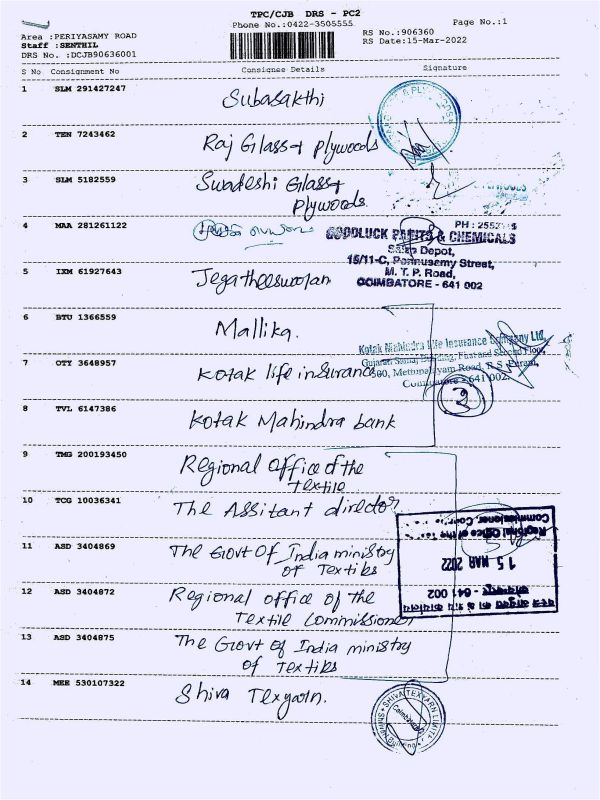 TPC/CJB DRS - PC2
Phone No.:0422-3505555
Page No.:1
Area :PERIYASAMY ROAD
Staff :SENTHIL
DRS No. :DCJB90636001
RS No.:906360
RS Date:15-Mar-2022
S No Consignment No Consignee Details Signature
1 SLM 291427247 Subasakthi
2 TEN 7243462 Raj Glass & plywoods
3 SLM 5182559 Swadeshi Glass &
plywoods
4 MAA 281261122
PH : 2552
GOODLUCK PAINTS & CHEMICALS
Sales Depot,
15/11-C, Ponnusamy Street,
M. T. P. Road,
COIMBATORE - 641 002
5 IXM 61927643 Jegatheeswaran
6 BTU 1366559 Mallika.
Kotak Mahindra Life Insurance Company Ltd,
Building, First and Second Floor,
500, Mettupalayam Road, R.S. Puram,
Coimbatore - 641 002.
7 OTY 3648957 Kotak life insurance
3
8 TVL 6147386 Kotak Mahindra bank
9 TMG 200193450 Regional office of the
Textile
10 TCG 10036341 The Assitant director
Regional Office of the
Commissioner,
15 MAR 2022
- 641 002
11 ASD 3404869 The Govt Of India ministry
of Textiles
12 ASD 3404872 Regional office of the
Textile Commissioner
13 ASD 3404875 The Govt of India ministry
of Textiles
14 MEE 530107322 Shiva Texyarn.
SHIVA TEXYARN LIMITED
Coimbatore
Building